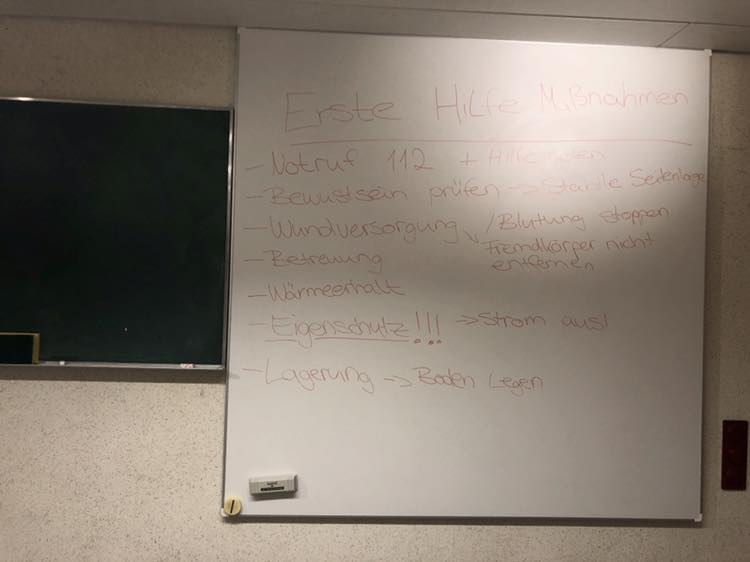 Erste Hilfe Maßnahmen
- Notruf 112 + Hilfe holen
- Bewustsein prüfen -> Stabile Seitenlage
- Wundversorgung / Blutung stoppen
Fremdkörper nicht
entfernen
- Betreuung
- Wärmeerhalt
- Eigenschutz!!! -> Strom aus!
- Lagerung -> Boden Legen